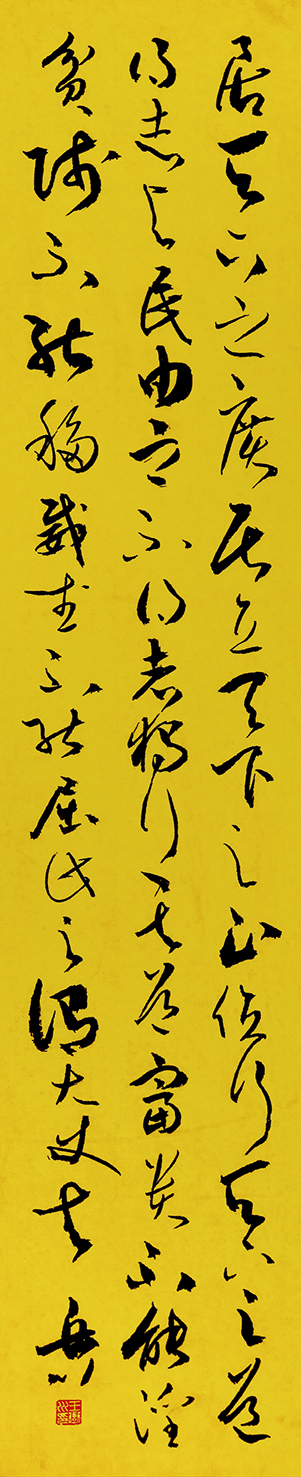 居天下之廣居立天下之正位行天下之道
得志与民由之不得志獨行其道富貴不能淫
貧賤不能移威武不能屈此之謂大丈夫 岳川